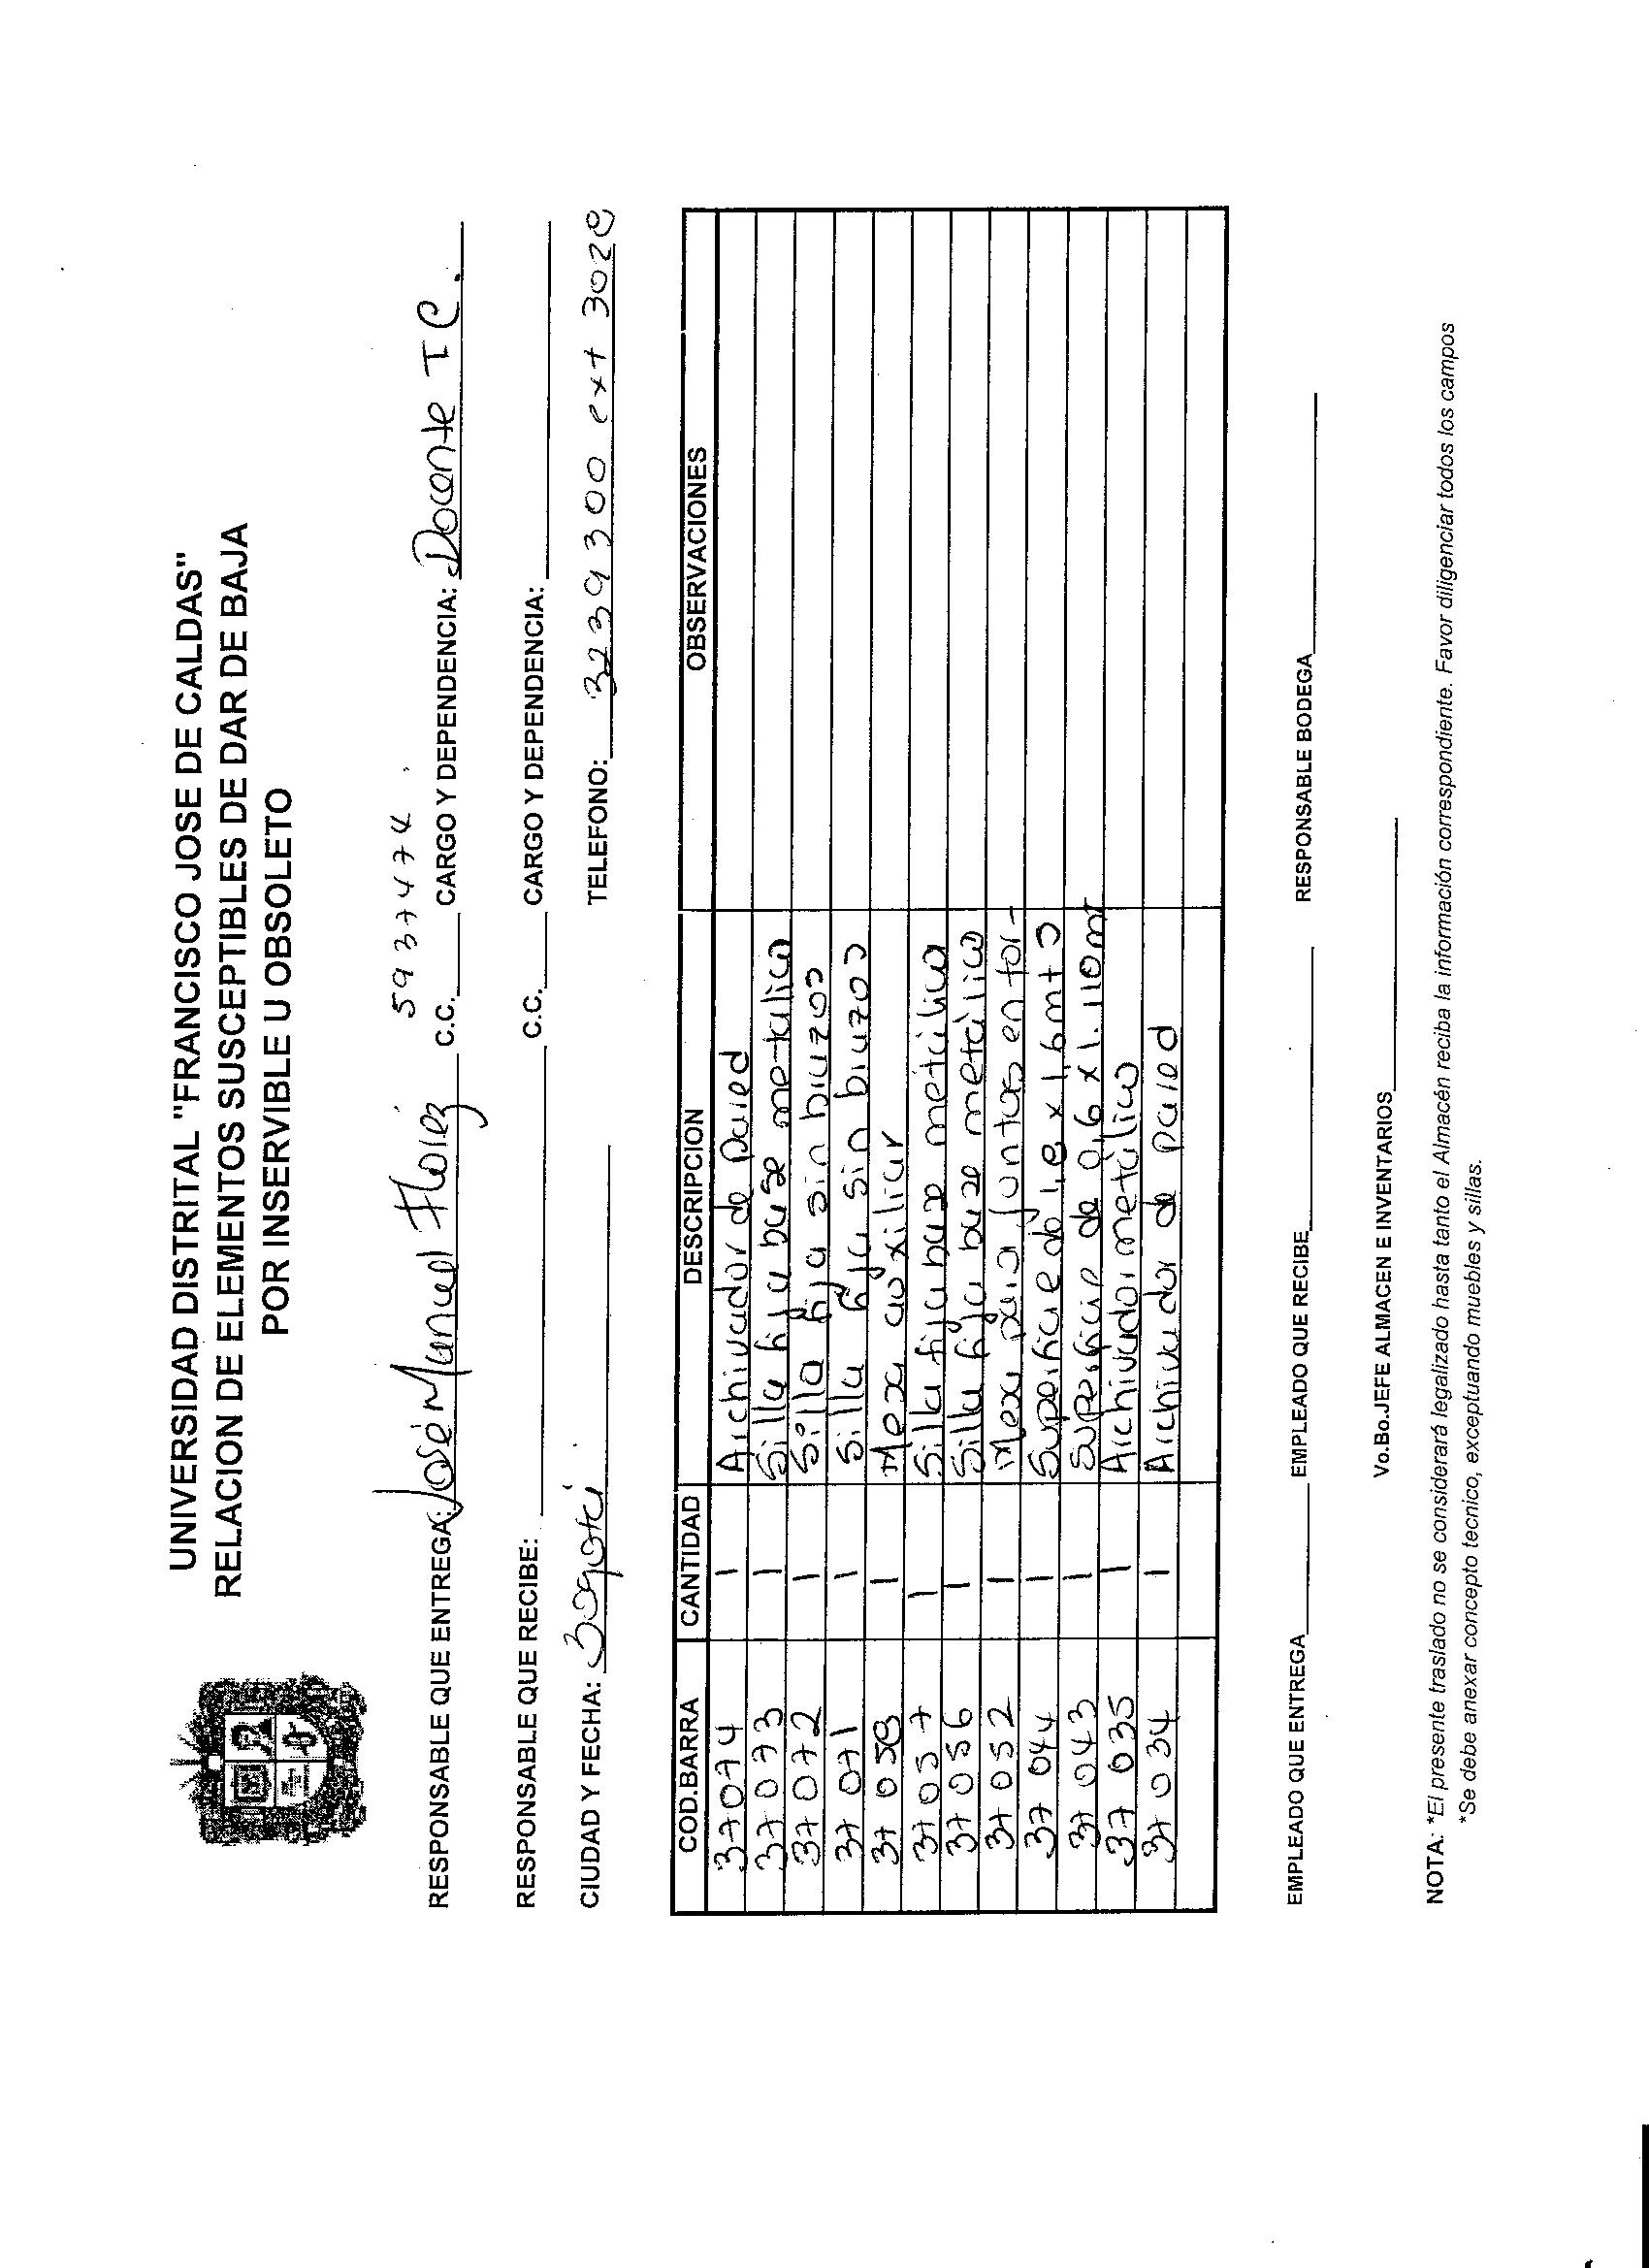 UNIVERSIDAD DISTRITAL "FRANCISCO JOSE DE CALDAS"
RELACION DE ELEMENTOS SUSCEPTIBLES DE DAR DE BAJA
POR INSERVIBLE U OBSOLETO
RESPONSABLE QUE ENTREGA: José Manuel Florez C.C. 5937474 CARGO Y DEPENDENCIA: Docente TC.
RESPONSABLE QUE RECIBE: C.C. CARGO Y DEPENDENCIA:
CIUDAD Y FECHA: Bogotá TELEFONO: 3239300 ext 3020
COD.BARRA CANTIDAD DESCRIPCION OBSERVACIONES
37074 1 Archivador de Pared
37073 1 Silla fija base metalica
37072 1 Silla fija sin brazos
37071 1 Silla fija sin brazos
37058 1 Mesa auxiliar
37057 1 Silla fija base metálica
37056 1 Silla fija base metálica
37052 1 Mesa para juntas en for-
37044 1 Superficie de x 1.6 mt
37043 1 Superficie de 0,6 x 1.110mt
37035 1 Archivador metálico
37034 1 Archivador de pared
EMPLEADO QUE ENTREGA EMPLEADO QUE RECIBE RESPONSABLE BODEGA
Vo.Bo.JEFE ALMACEN E INVENTARIOS
NOTA: *El presente traslado no se considerará legalizado hasta tanto el Almacén reciba la información correspondiente. Favor diligenciar todos los campos
*Se debe anexar concepto tecnico, exceptuando muebles y sillas.